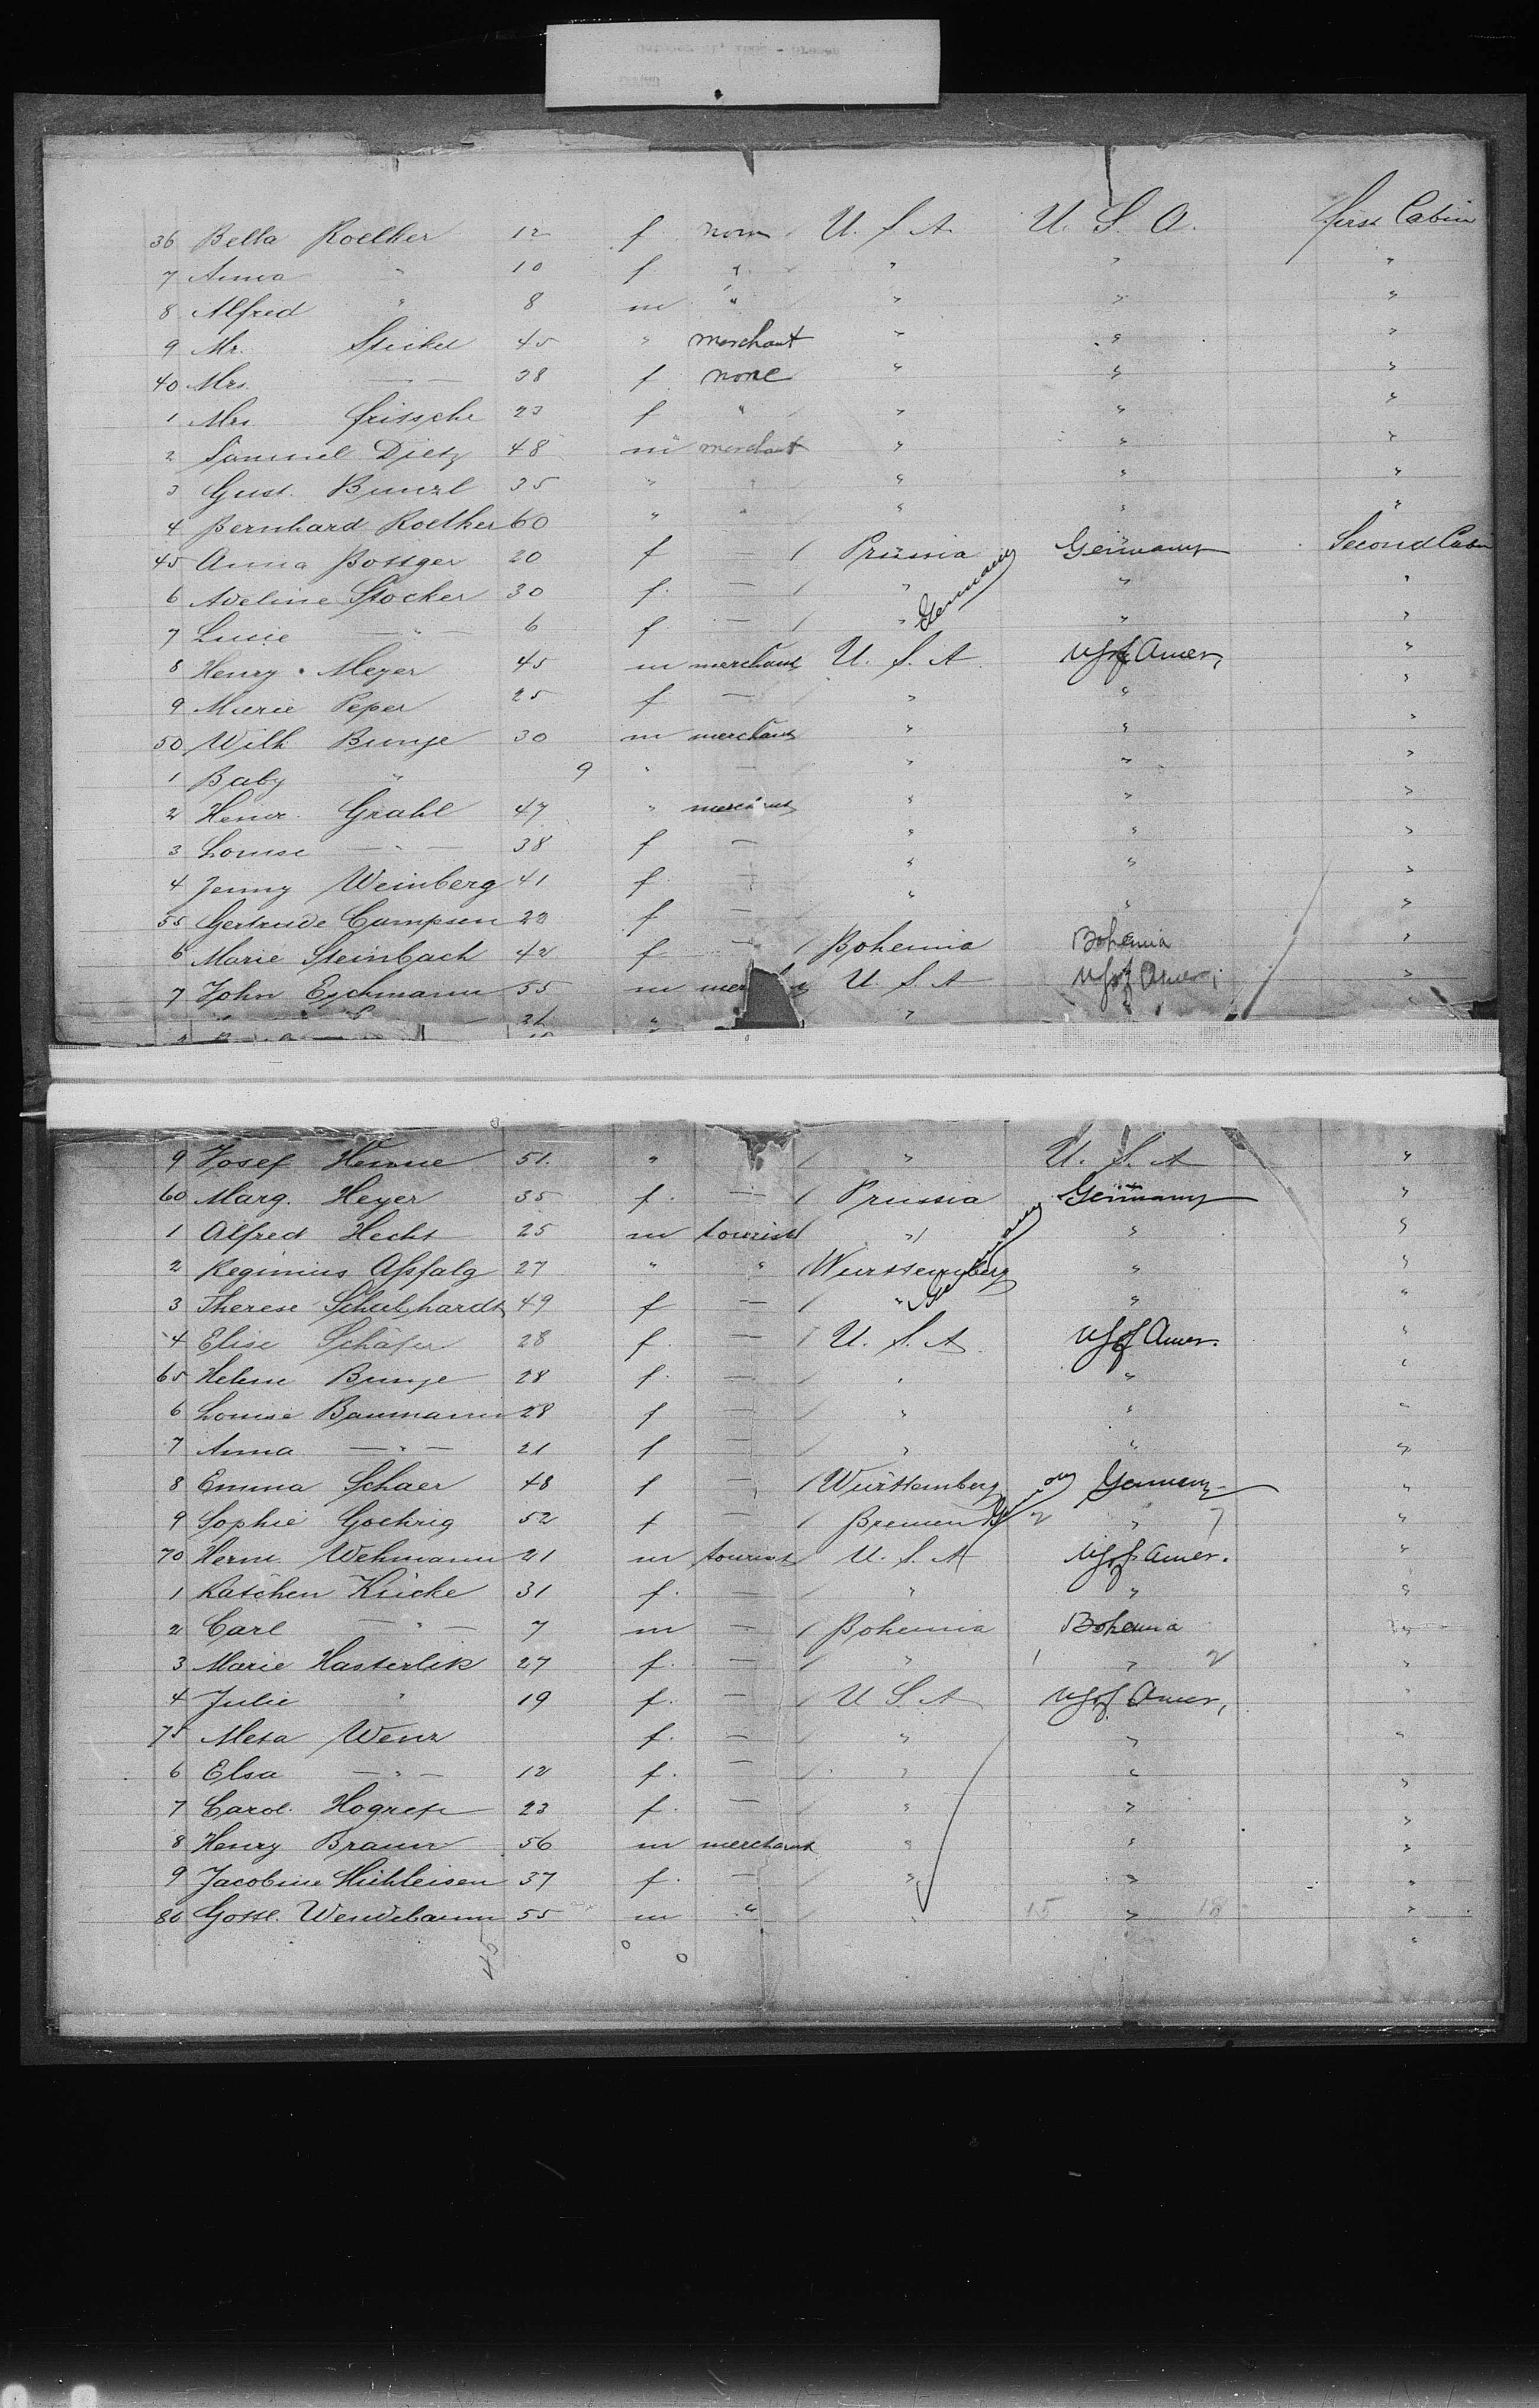 36 Bella Roelker 12 f none U. S. A. U. S. A. First Cabin
7 Anna " 10 f " " " "
8 Alfred " 8 m " " " "
9 Mr. Stickel 45 " merchant " " "
40 Mrs. — — 38 f none " " "
1 Mrs. Fritsche 23 f " " " "
2 Samuel Dietz 48 m merchant " " "
3 Gust. Bunzl 35 " " " " "
4 Bernhard Roelker 60 " " " " "
45 Anna Böttger 20 f — / Prussia Germany Second Cabin
6 Adeline Stocker 30 f. — / " Germany " "
7 Lucie — " — 6 f — / " " "
8 Henry Meyer 45 m merchant U. S. A US of Amer. "
9 Marie Peper 25 f — " " "
50 Wilh Bunge 30 m merchant " " "
1 Baby " 9 " — " " "
2 Henr. Grahl 47 " merchant " " "
3 Louise — " — 38 f — " " "
4 Jenny Weinberg 41 f — " " "
55 Gertrude Campsen 23 f — " " "
6 Marie Steinbach 42 f — / Bohemia Bohemia "
7 John Eschmann 55 m U. S. A US of Amer. "
21 " "
9 Josef Henne 51. " / " U. S. A "
60 Marg. Heyer 35 f. — / Prussia Germany "
1 Alfred Hecht 25 m tourist " " "
2 Regimius Assfalg 27 " " / Wurttemberg Germany " "
3 Therese Schubhardt 49 f — / " " "
4 Elise Schäfer 28 f. — / U. S. A. US of Amer. "
65 Helene Bunge 28 f. — / " " "
6 Louise Baumann 28 f — / " " "
7 Anna — " — 21 f — / " " "
8 Emma Schaer 48 f — / Württemberg Germany "
9 Sophie Goehrig 52 f — / Bremen 2 " 7 "
70 Herm Wehmann 21 m tourist U. S. A US of Amer. "
1 Kätchen Kücke 31 f. — / " " "
2 Carl — " — 7 m — / Bohemia Bohemia "
3 Marie Hasterlik 27 f. — / " 1 " 2 "
4 Julie " 19 f. — / U S A US of Amer. "
75 Meta Wenz f. — / " " "
6 Elsa — " — 12 f. — / " " "
7 Carol. Hogrefe 23 f. — / " " "
8 Henry Braun 56 m merchant " " "
9 Jacobine Hühleisen 37 f. — / " " "
80 Gottl. Wendebaum 55 m " / " 15 " 18 "
45 0 0 "